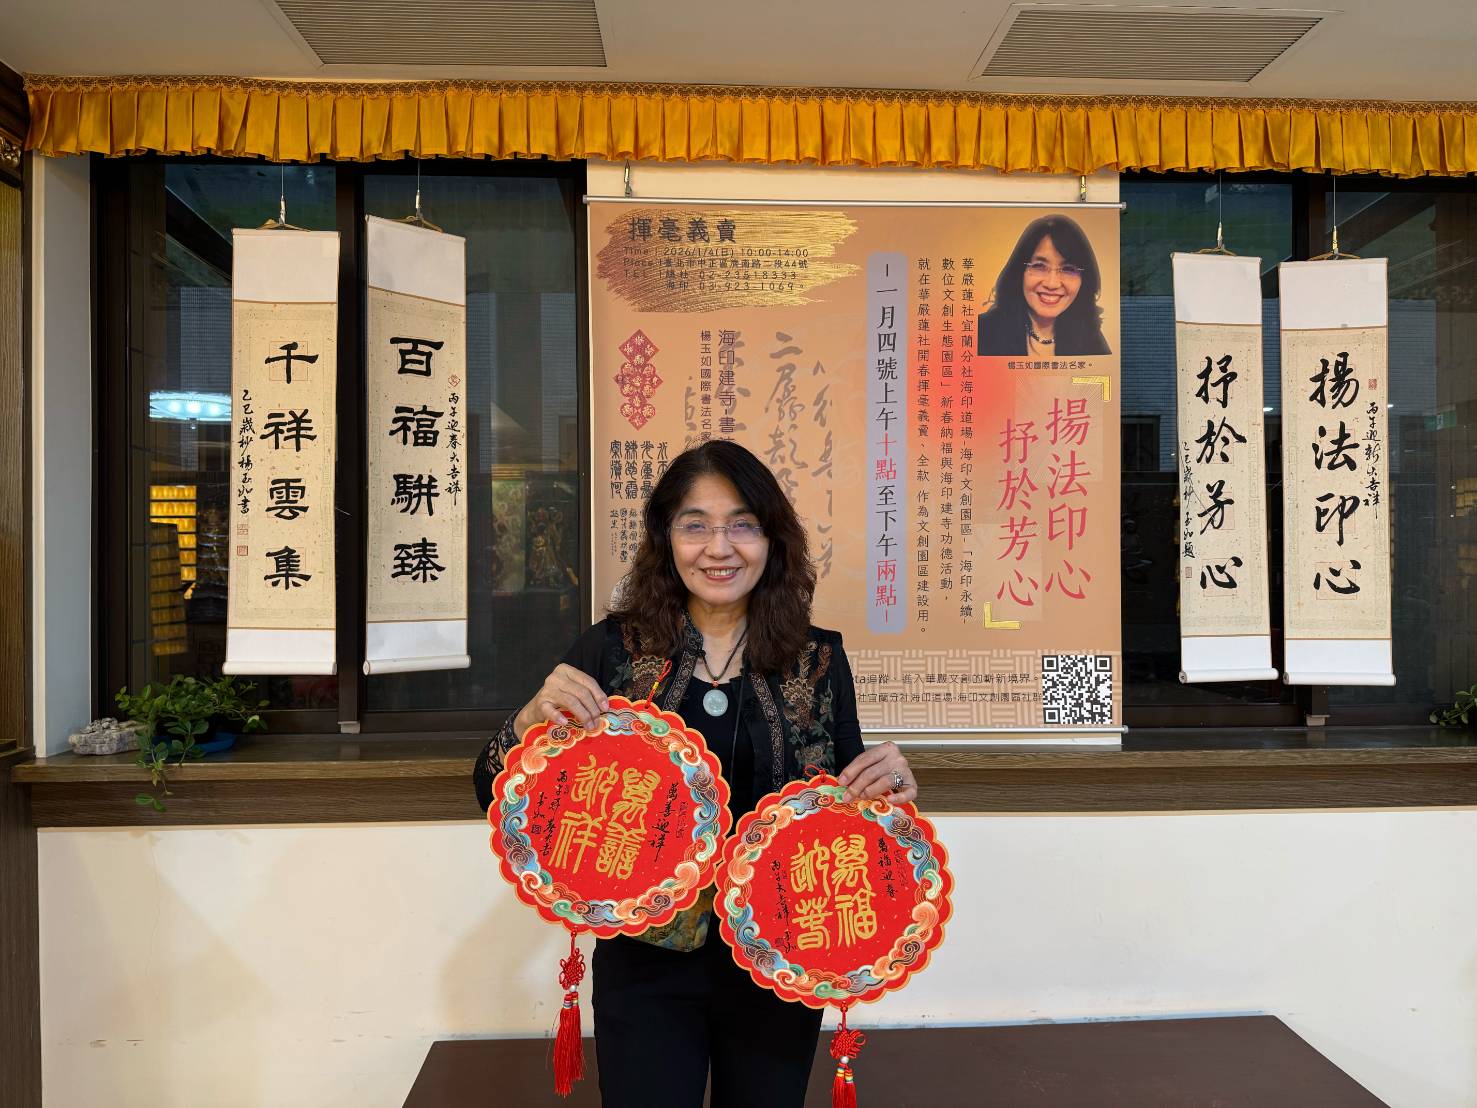 百福駢臻
丙午迎春大吉祥
千祥雲集
乙巳歲杪楊玉如書
揮毫義賣
Time｜2026/1/4(日) 10:00-14:00
Place｜臺北市中正區濟南路二段44號
華嚴蓮社宜蘭分社海印道場-海印文創園區-「海印永續-
數位文創生態園區」新春納福與海印建寺功德活動，
就在華嚴蓮社開春揮毫義賣、全款 作為文創園區建設用。
-一月四號上午十點至下午兩點-
海印建寺-書
楊玉如國際書法名家
楊玉如國際書法名家。
揚法印心
抒於芳心
ta追蹤、進入華嚴文創的嶄新境界。
社宜蘭分社海印道場-海印文創園區社群
揚法印心
丙午迎新大吉祥
抒於芳心
乙巳歲杪玉如題
萬善迎祥
萬善迎祥
玉如
萬福迎春
萬福迎春
丙午大吉祥 玉如